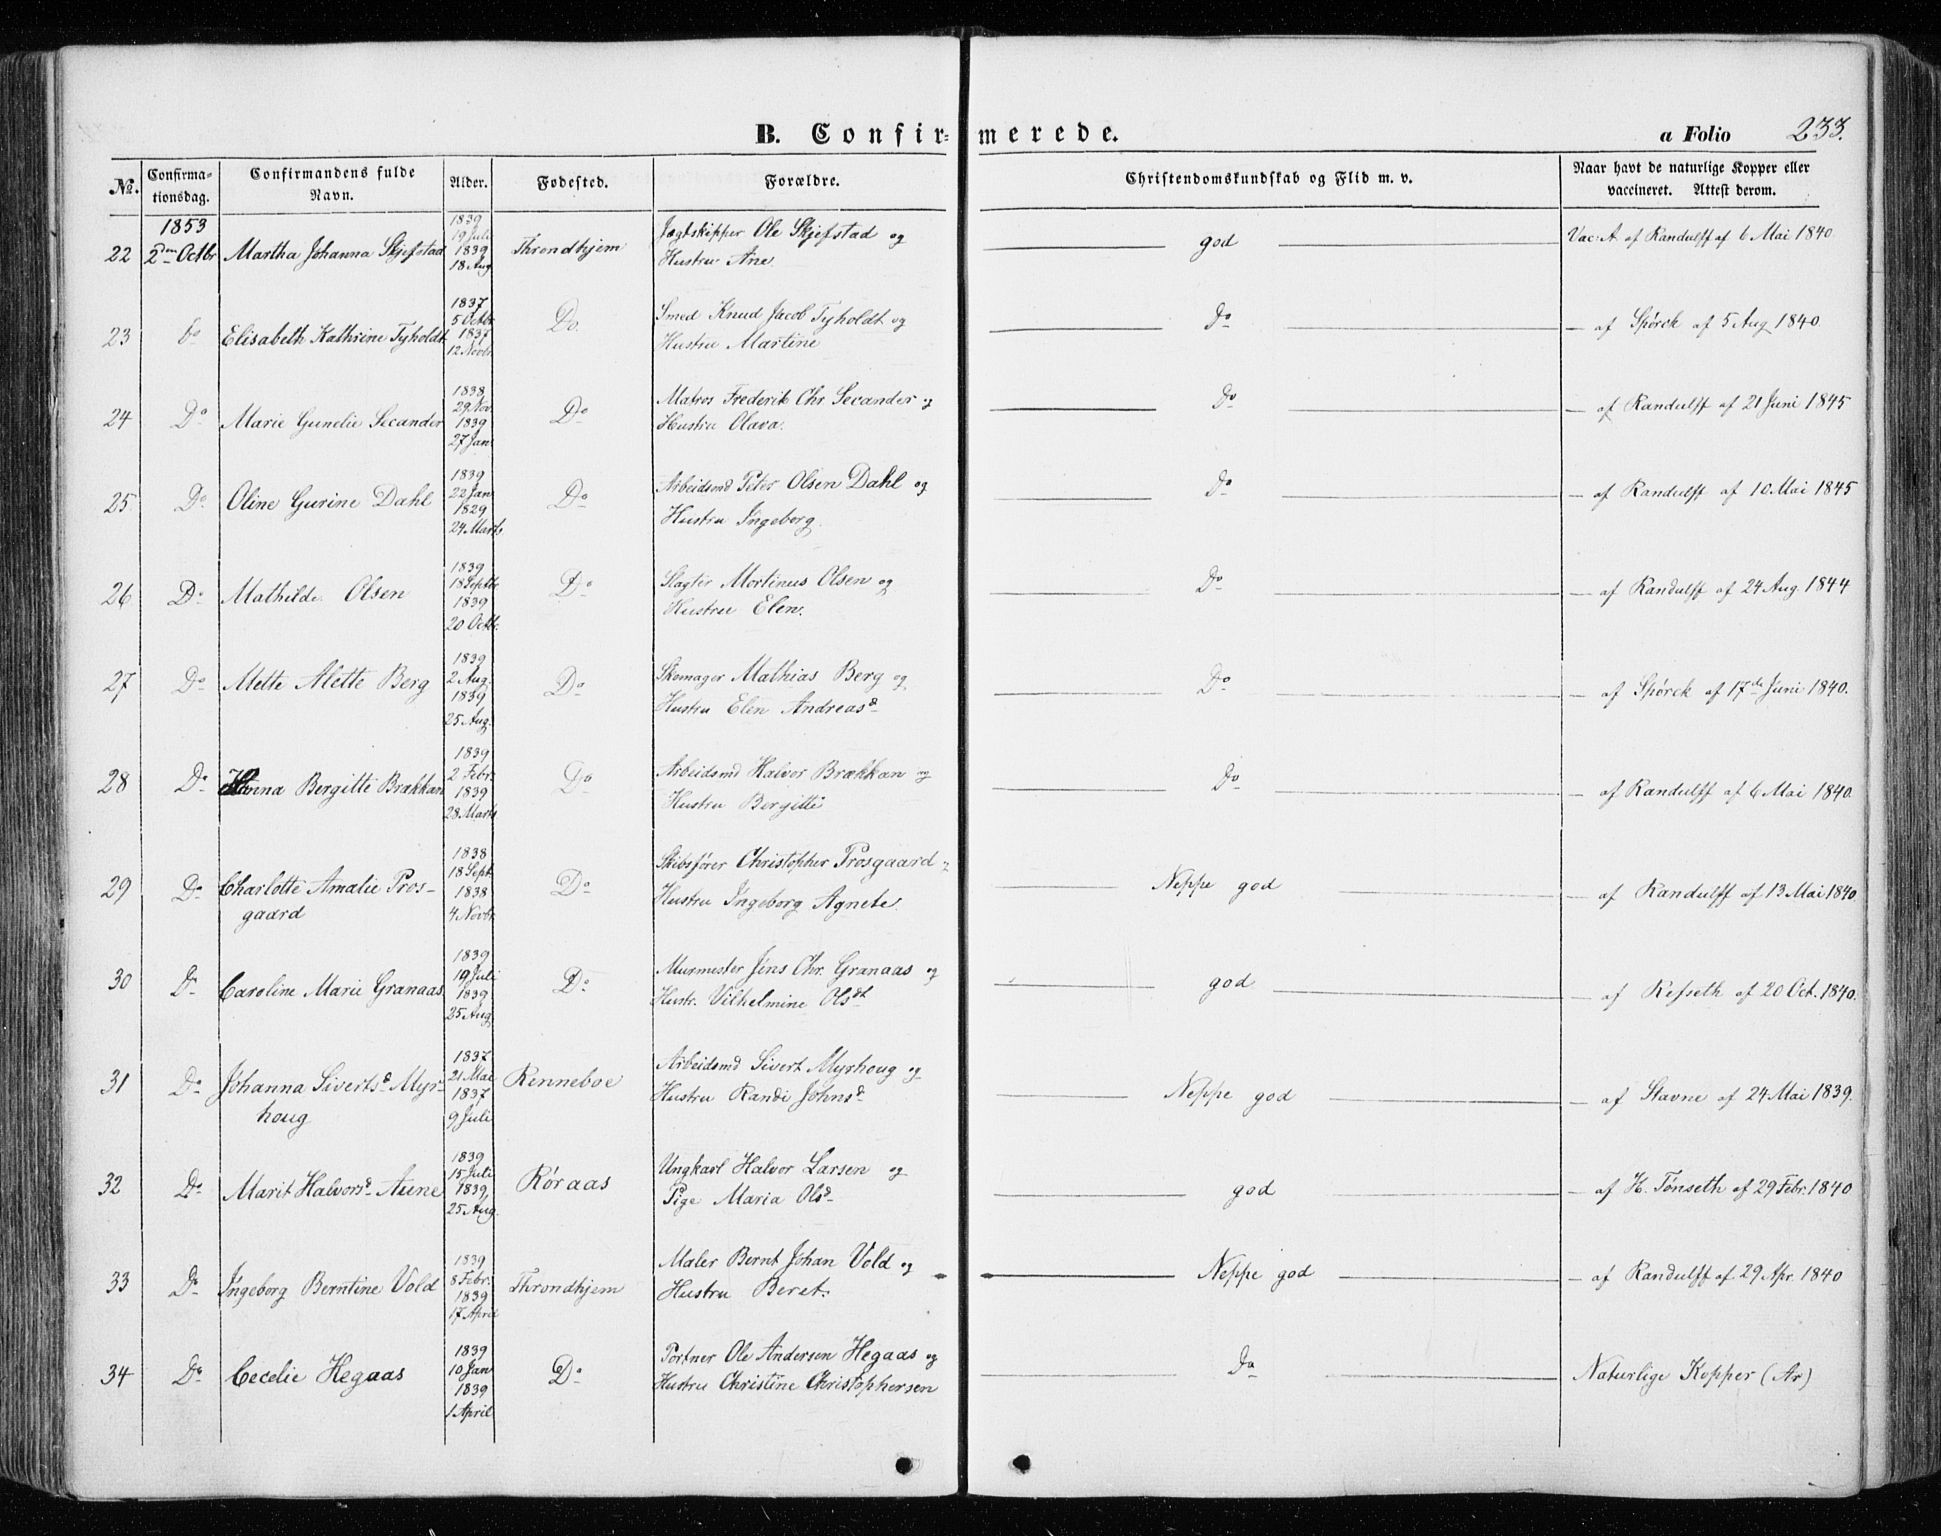 B. Confir-merede.
a Folio 233.
No. Confirma-tionsdag. Confirmandens fulde Navn. Alder. Fødested. Forældre. Christendomskundskab og Flid m. v. Naar havt de naturlige Kopper eller vaccineret. Attest derom.
1853
22 2den Octbr Martha Johanna Skjefstad 1839 19 Juli 1839 18 Aug Throndhjem Jægtskipper Ole Skjefstad og
Hustru Ane. god Vac: A. af Randulff af 6 Mai 1840.
23 do Elisabeth Kathrine Tyholdt 1837 5 Octbr 1837 12 Novbr. Do. Smed Knud Jacob Tyholdt og
Hustru Martine Do — af Spørck af 5 Aug 1840.
24 Do Marie Gunelie Secander 1838 29 Nov. 1839 27 Jan. Do Matros Frederik Chr. Secander og
Hustru Olava. Do — af Randulff af 21 Juni 1845
25 Do Oline Gurine Dahl 1839 22 Jan 1829 24 Marts Do Arbeidsmd Peter Olsen Dahl og
Hustru Ingeborg. Do — af Randulff af 10 Mai 1845
26 Do Mathilde Olsen 1839 18 Septbr 1839 20 Octbr. Do Slagter Mortinus Olsen og
Hustru Elen. Do — af Randulff af 24 Aug. 1844
27 Do Mette Alette Berg 1839 2 Aug. 1839 25 Aug. Do Skomager Mathias Berg og
Hustru Elen Andreasd Do — af Spørck af 17de Juni 1840.
28 Do Hanna Bergitte Brækkan 1839 2 Febr. 1839 28 Marts Do Arbeidsmd Halvor Brækkan og
Hustru Bergitte Do — af Randulff af 6 Mai 1840.
29 Do Charlotte Amalie Pros-
gaard 1838 18 Sept. 1838 4 Novbr. Do Skibsfører Christopher Prosgaard
Hustru Ingeborg Agnete Neppe god — af Randulff af 13 Mai 1840
30 Do Caroline Marie Granaas 1839 19 Juli 1839 25 Aug Do Murmester Jens Chr. Granaas og
Hustr. Vilhelmine Olsdt god — af Refseth af 20 Oct. 1840.
31 Do Johanna Sivertsd Myr-
houg 1837 21 Mai 1837 9 Juli Renneboe Arbeidsmd Sivert Myrhoug og
Hustru Randi Johnsd Neppe god — af Stavne af 24 Mai 1839.
32 Do Marit Halvorsd Aune 1839 15 Juli 1839 25 Aug. Røraas Ungkarl Halvor Larsen og
Pige Maria Olsd god — af H. Tønseth af 29 Febr. 1840
33 Do Ingeborg Berntine Vold 1839 8 Febr. 1839 17 April Throndhjem Maler Bernt Johan Vold og
Hustru Beret. Neppe god — af Randulff af 29 Apr. 1840
34 Do Cecelie Hegaas 1839 10 Jan 1839 1 April Do Portner Ole Andersen Hegaas og
Hustru Christine Christophersen Do Naturlige Kopper (Ar)